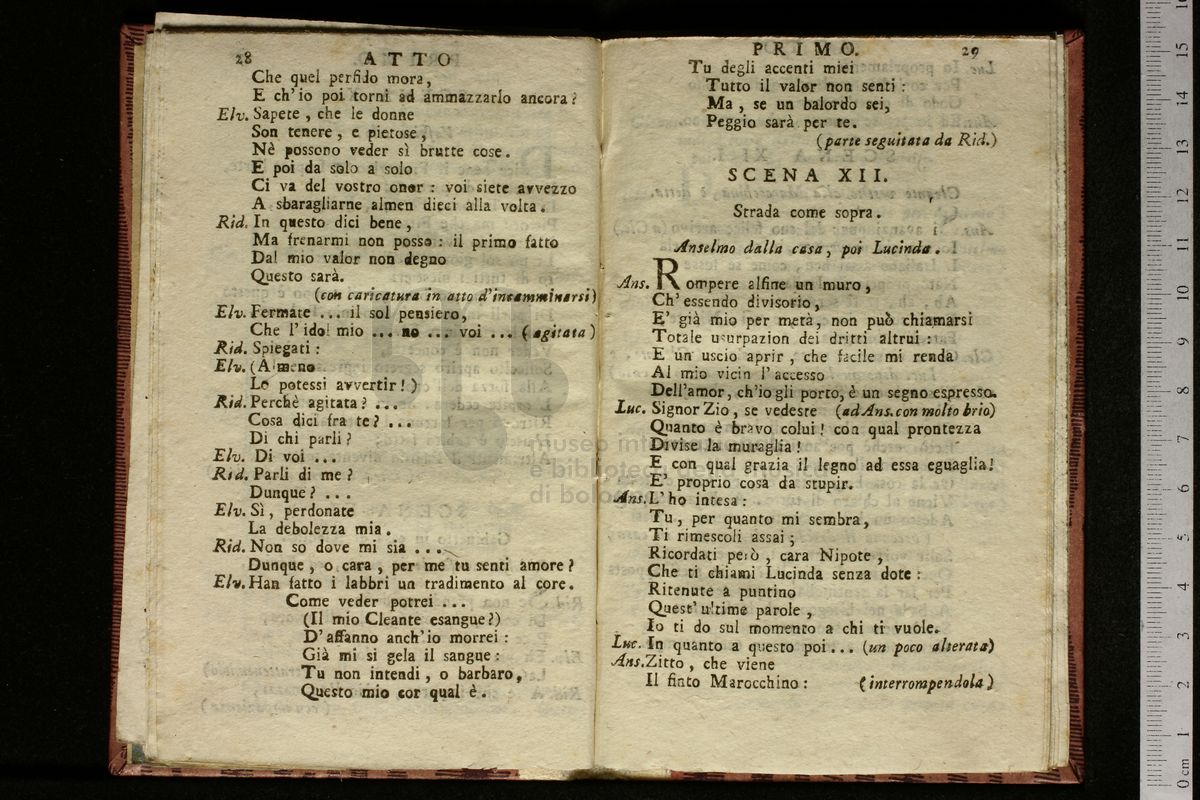 28 ATTO
Che quel perfido mora,
E ch'io poi torni ad ammazzarlo ancora?
Elv. Sapete, che le donne
Son tenere, e pietose,
Nè possono veder sì brutte cose.
E poi da solo a solo
Ci va del vostro onor: voi siete avvezzo
A sbaragliarne almen dieci alla volta.
Rid. In questo dici bene,
Ma frenarmi non posso: il primo fatto
Dal mio valor non degno
Questo sarà.
(con caricatura in atto d'incamminarsi)
Elv. Fermate ... il sol pensiero,
Che l'idol mio ... no ... voi ... (agitata)
Rid. Spiegati:
Elv. (Almeno
Lo potessi avvertir!)
Rid. Perchè agitata? ...
Cosa dici fra te? ...
Di chi parli?
Elv. Di voi ...
Rid. Parli di me?
Dunque? ...
Elv. Sì, perdonate
La debolezza mia.
Rid. Non so dove mi sia ...
Dunque, o cara, per me tu senti amore?
Elv. Han fatto i labbri un tradimento al core.
Come veder potrei ...
(Il mio Cleante esangue?)
D'affanno anch'io morrei:
Già mi si gela il sangue:
Tu non intendi, o barbaro,
Questo mio cor qual è.
PRIMO. 29
Tu degli accenti miei
Tutto il valor non senti:
Ma, se un balordo sei,
Peggio sarà per te.
(parte seguitata da Rid.)
SCENA XII.
Strada come sopra.
Anselmo dalla casa, poi Lucinda.
Ans. Rompere alfine un muro,
Ch'essendo divisorio,
E' già mio per metà, non può chiamarsi
Totale usurpazion dei dritti altrui:
E un uscio aprir, che facile mi renda
Al mio vicin l'accesso
Dell'amor, ch'io gli porto, è un segno espresso.
Luc. Signor Zio, se vedeste (ad Ans. con molto brio)
Quanto è bravo colui! con qual prontezza
Divise la muraglia!
E con qual grazia il legno ad essa eguaglia!
E' proprio cosa da stupir.
Ans. L'ho intesa:
Tu, per quanto mi sembra,
Ti rimescoli assai;
Ricordati però, cara Nipote,
Che ti chiami Lucinda senza dote:
Ritenute a puntino
Quest'ultime parole,
Io ti do sul momento a chi ti vuole.
Luc. In quanto a questo poi ... (un poco alterata)
Ans. Zitto, che viene
Il finto Marocchino: (interrompendola)